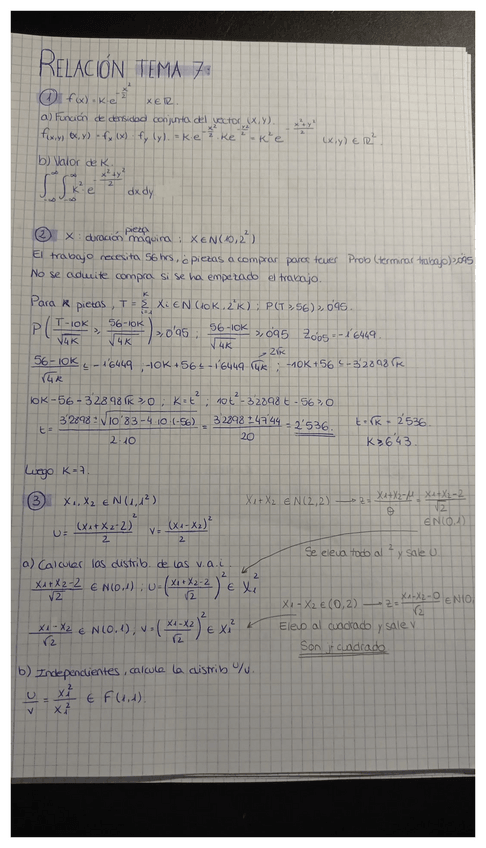 RELACIÓN TEMA 7:
① f(x) = K·e^{-x²/2} x ∈ ℝ.
a) Función de densidad conjunta del vector (X,Y).
f(x,y) (x,y) = fx (x) · fy (y) = K·e^{-x²/2} · K e^{-y²/2} = K² e^{-(x²+y²)/2} (x,y) ∈ ℝ².
b) Valor de K.
∫_{-∞}^{∞} ∫_{-∞}^{∞} K² · e^{-(x²+y²)/2} dx dy
② X: duración pieza máquina ; X ∈ N(10, 2²)
El trabajo necesita 56 hrs, ¿ piezas a comprar para tener Prob (terminar trabajo) ≥ 0'95
No se admite compra si se ha empezado el trabajo.
Para K piezas, T = Σ_{i=1}^{K} Xi ∈ N(10K, 2²K) ; P(T ≥ 56) ≥ 0'95.
P( (T-10K)/√4K ≥ (56-10K)/√4K ) ≥ 0'95 ; (56-10K)/√4K ≥ 0'95 Z0'05 = -1'6449
(56-10K)/√4K ≤ -1'6449 , -10K+56 ≤ -1'6449 · √4K → 2√K ; -10K+56 ≤ -3'2898 √K
10K-56-3'2898√K ≥ 0 ; K = t² ; 10t² - 3'2898 t - 56 ≥ 0
t = (3'2898 ± √(10'83 - 4·10·(-56)))/(2·10) = (3'2898 ± 47'44)/20 = 2'536. t = √K = 2'536.
K ≥ 6'43.
Luego K = 7.
③ X₁, X₂ ∈ N(1, 1²) X₁+X₂ ∈ N(2,2) → Z = (X₁+X₂-μ)/θ = (X₁+X₂-2)/√2 ∈ N(0,1)
U = (X₁+X₂-2)²/2 V = (X₁-X₂)²/2
Se eleva todo al ² y sale U
a) Calcular las distrib. de las v.a.i
(X₁+X₂-2)/√2 ∈ N(0,1), U = ((X₁+X₂-2)/√2)² ∈ X₁²
X₁-X₂ ∈ (0,2) → Z = (X₁-X₂-0)/√2 ∈ N(0,
(X₁-X₂)/√2 ∈ N(0,1), V = ((X₁-X₂)/√2)² ∈ X₁²
Elevo al cuadrado y sale V
Son χ cuadrado
b) Independientes, calcula la distrib U/V.
U/V = X₁²/X₁² ∈ F(1,1).